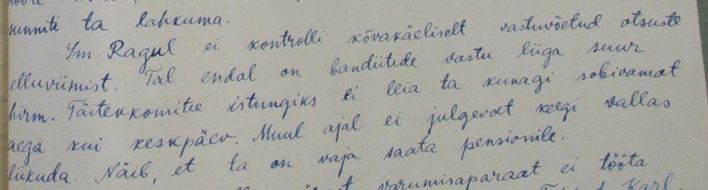 sunniti ta lahkuma.
Sm. Ragul ei kontrolli kõvakäeliselt vastuvõetud otsuste
elluviimist. Tal endal on bandiitide vastu liiga suur
hirm. Täitevkomitee istungiks ei leia ta kunagi sobivamat
aega kui keskpäev. Muul ajal ei julgevat keegi vallas
liikuda. Näib, et ta on vaja saata pensionile.
varumisaparaat ei tööta
Karl